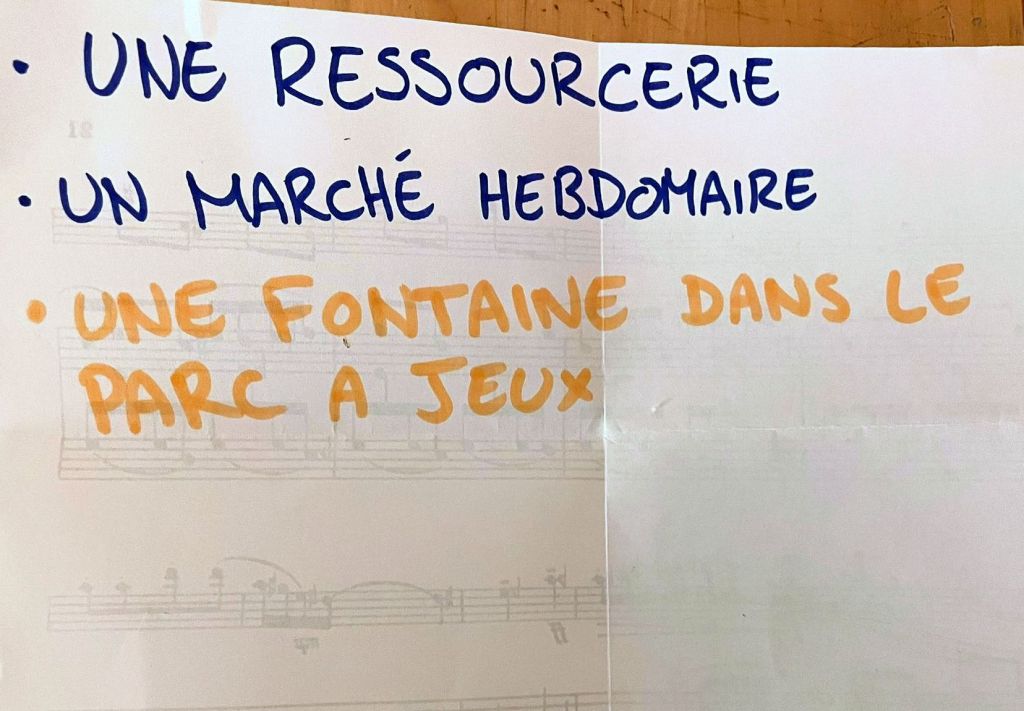 • UNE RESSOURCERIE
• UN MARCHÉ HEBDOMAIRE
• UNE FONTAINE DANS LE
PARC A JEUX